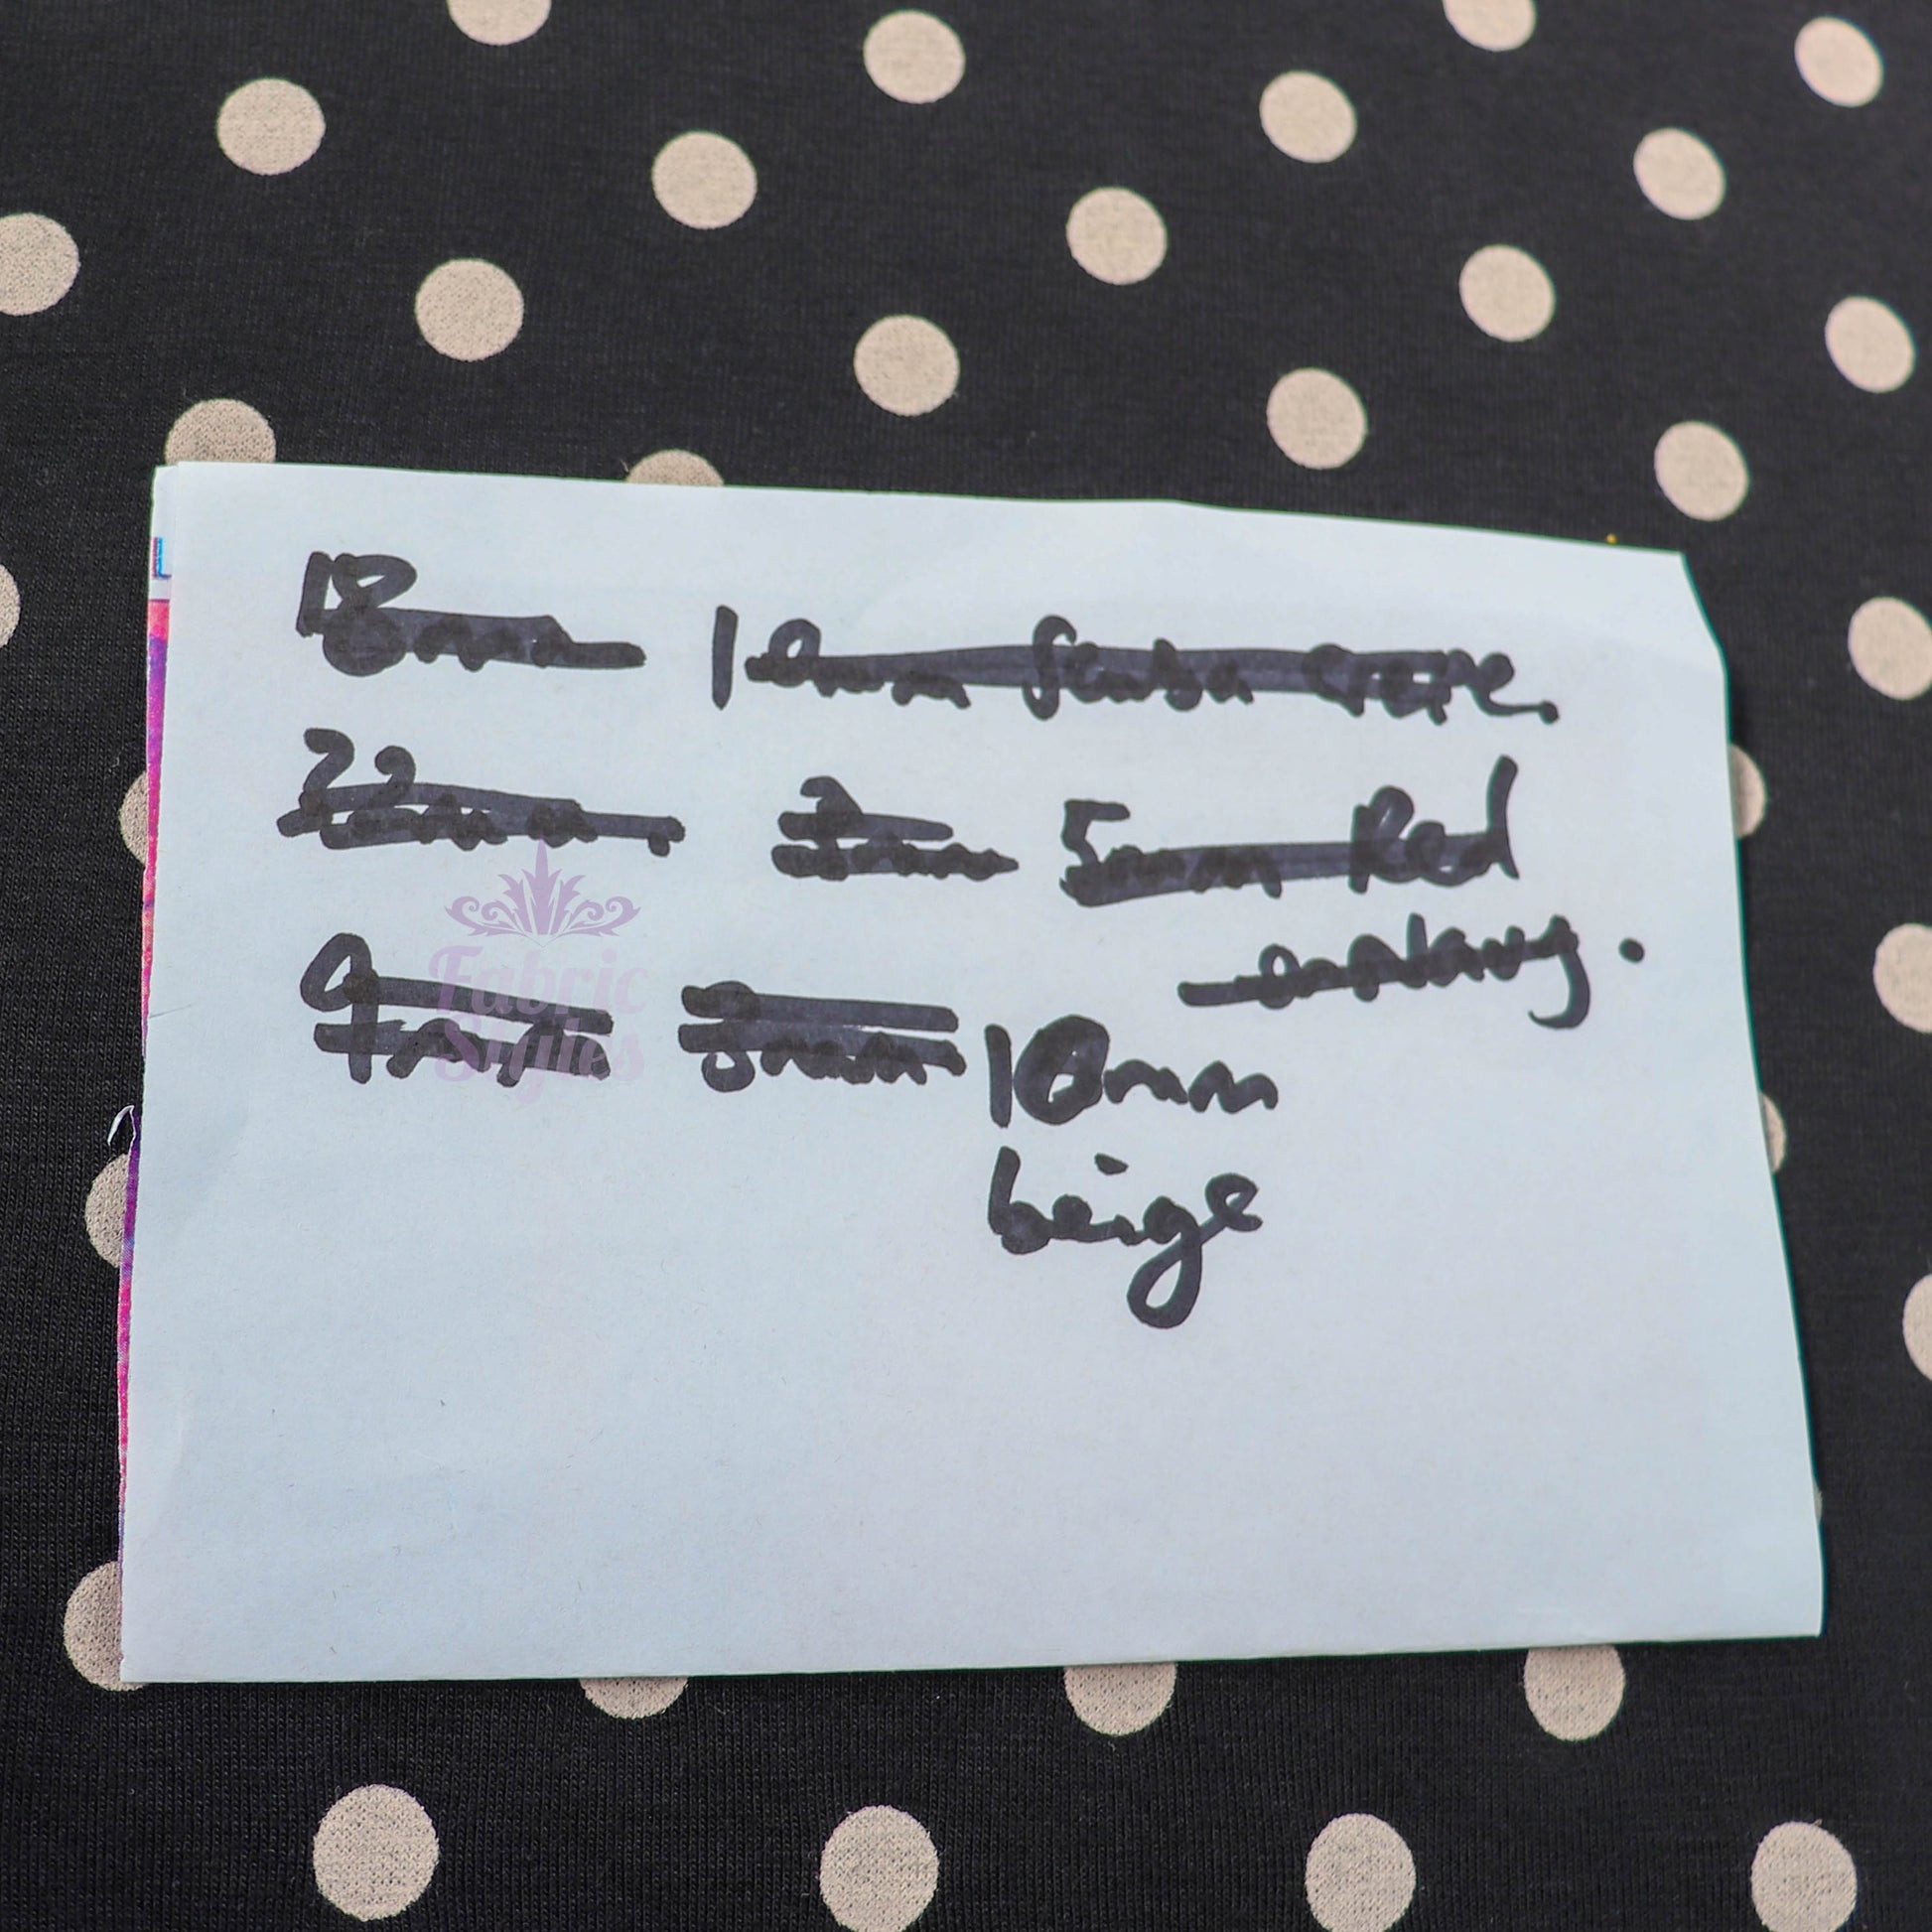 18mm 10mm Scuba crepe.
22mm. 3mm 5mm Red
on Navy.
9mm 3mm 10mm
beige
Fabric
Styles
L